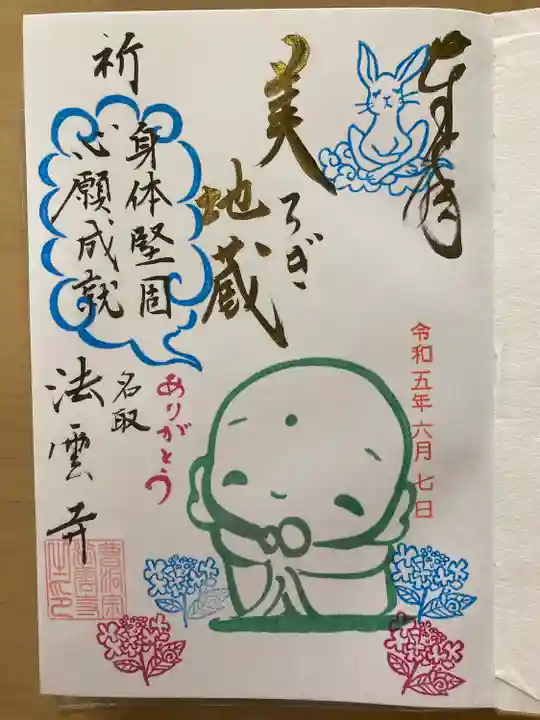 奉拝
美
うさぎ
地蔵
祈
身体堅固
心願成就
ありがとう
名取
法雲寺
令和五年六月七日